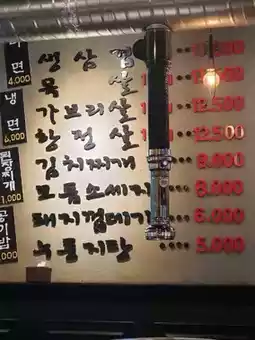 생 삼 겹
목 살
가브리살 12.500
항 정 살 12.500
김치찌개
모듬소세지 8.000
돼지껍데기 6.000
누룽지탕 5.000
면
4,000
냉면
6,000
된장찌개
공기밥